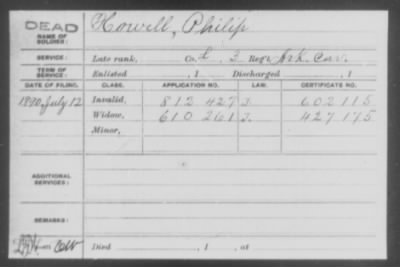 DEAD
NAME OF SOLDIER: Howell, Philip
SERVICE: Late rank, Co. L, 3 Regt. Ark Cav.
TERM OF SERVICE: Enlisted , 1 Discharged , 1
DATE OF FILING. CLASS. APPLICATION NO. LAW. CERTIFICATE NO.
1890, July 12 Invalid, 812 427 J. 602 115
Widow, 610 261 J. 427 175
Minor,
ADDITIONAL SERVICES:
REMARKS:
Died , 1 , at